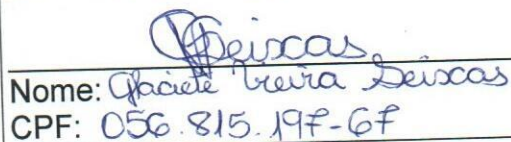 Seixas
Nome: Glaciete Vieira Seixas
CPF: 056.815.197-67